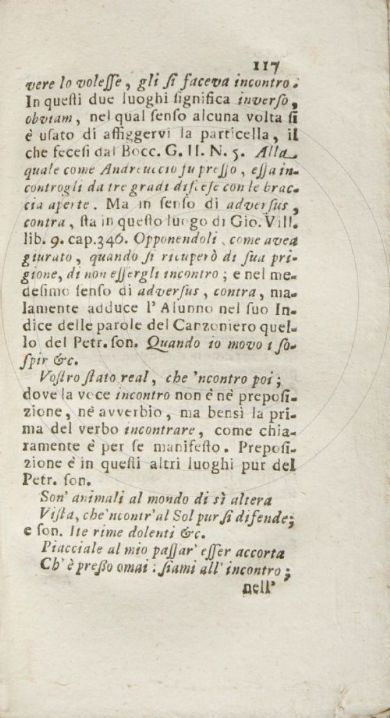 117
vere lo voleſſe, gli ſi faceva incontro.
In queſti due luoghi ſignifica inverſo,
obviam, nel qual ſenſo alcuna volta ſi
è uſato di affiggervi la particella, il
che feceſi dal Bocc. G. II. N. 5. Alla
quale come Andreuccio fu preſſo, eſſa in-
controgli da tre gradi diſceſe con le brac-
cia aperte. Ma in ſenſo di adverſus,
contra, ſta in queſto luogo di Gio. Vill.
lib. 9. cap. 346. Opponendoli, come avea
giurato, quando ſi ricuperò di ſua pri-
gione, di non eſſergli incontro; e nel me-
deſimo ſenſo di adverſus, contra, ma-
lamente adduce l'Alunno nel ſuo In-
dice delle parole del Canzoniero quel-
lo del Petr. ſon. Quando io movo i ſo-
ſpir &c.
Voſtro ſtato real, che 'ncontro poi;
dove la voce incontro non è nè prepoſi-
zione, nè avverbio, ma bensì la pri-
ma del verbo incontrare, come chia-
ramente è per ſe manifeſto. Prepoſi-
zione è in queſti altri luoghi pur del
Petr. ſon.
Son' animali al mondo di sì altera
Viſta, che 'ncontr' al Sol pur ſi difende;
e ſon. Ite rime dolenti &c.
Piacciale al mio paſſar' eſſer accorta
Ch' è preſſo omai: ſiami all' incontro;
nell'